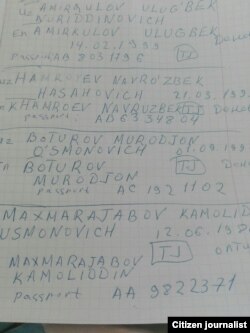 uz AMIRQULOV ULUG'BEK
NURIDDINOVICH
En AMIRKULOV ULUGBEK
14.02.1999
passport AB 8031196 TJ
uz HAMROYEV NAVRO'ZBEK
HASAHOVICH 21.03.199
HAMROEV NAVRUZBEK TJ
passport. AD 6334804
uz BOTUROV MURODJON
O'SMONOVICH 01.09.199
BOTUROV TJ
MURODJON
passport AC 192 11.02
MAXMARAJABOV KAMOLID
USMONOVICH 12.06.19
MAXMARAJABOV TJ
KAMOLIDDIN
passport AA 9822371
Citizen journalist